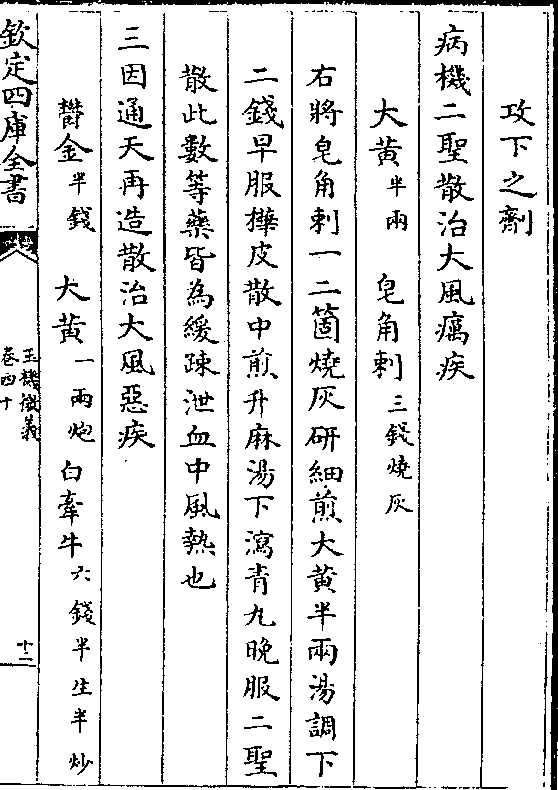 攻下之劑
病機二聖散治大風癘疾
大黃半兩 皂角刺三錢燒灰
右將皂角刺一二箇燒灰研細煎大黃半兩湯調下
二錢早服樺皮散中煎升麻湯下瀉青九晚服二聖
散此數等藥皆為緩疎泄血中風熱也
三因通天再造散治大風惡疾
欝金半錢 大黃一兩炮 白牽牛六錢半生半炒
欽定四庫全書
玉機微義
卷四十
十二